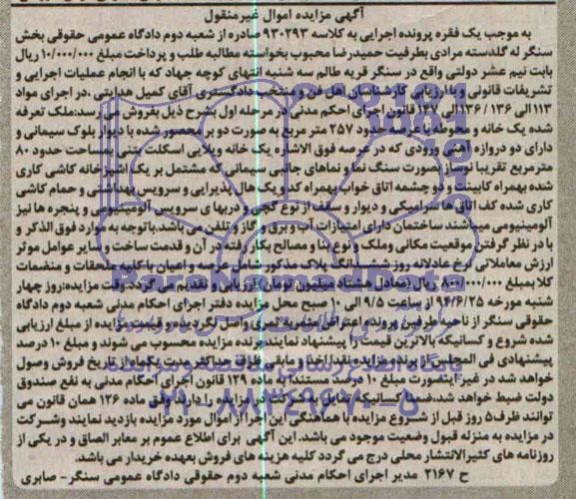 آگهی مزایده اموال غیرمنقول
به موجب یک فقره پرونده اجرایی به کلاسه ۹۳۰۲۹۳ صادره از شعبه دوم دادگاه عمومی حقوقی بخش
سنگر له گلدسته مرادی بطرفیت حمیدرضا محبوب بخواسته مطالبه طلب و پرداخت مبلغ ۱۰/۰۰۰/۰۰۰ ریال
بابت نیم عشر دولتی واقع در سنگر قریه طالم سه شنبه انتهای کوچه جهاد که با انجام عملیات اجرایی و
تشریفات قانونی و با ارزیابی کارشناسان اهل فن و منتخب دادگستری آقای کمیل هدایتی ،در اجرای مواد
۱۱۳الی ۱۳۶ / ۱۳۶الی ۱۴۷ قانون اجرای احکم مدنی در مرحله اول بشرح ذیل بفروش می رسد:ملک تعرفه
شده یک خانه و محوطه با عرصه حدود ۲۵۷ متر مربع به صورت دو بر محصور شده با دیوار بلوک سیمانی و
دارای دو دروازه آهنی ورودی که در عرصه فوق الاشاره یک خانه ویلایی اسکلت بتنی بمساحت حدود ۸۰
مترمربع تقریبا نوساز بصورت سنگ نما و نماهای جانبی سیمانی که مشتمل بر یک اشپزخانه کاشی کاری
شده بهمراه کابینت و دو چشمه اتاق خواب بهمراه کمد و یک هال پذیرایی و سرویس بهداشتی و حمام کاشی
کاری شده کف اتاق ها سرامیکی و دیوار و سقف از نوع گچی و دربهای سرویس آلومینیومی و پنجره ها نیز
آلومینیومی میباشند ساختمان دارای امتیازات آب و برق و گاز و تلفن می باشد.باتوجه به موارد فوق الذکر و
با در نظر گرفتن موقعیت مکانی وملک و نوع بنا و مصالح بکار رفته در آن و قدمت ساخت و سایر عوامل موثر
ارزش معاملاتی نرخ عادلانه روز ششدانگ پلاک مذکور شامل عرصه و اعیان با کلیه ملحقات و منضمات
کلا بمبلغ ۸۰۰/۰۰۰/۰۰۰ ریال (معادل هشتاد میلیون تومان) ارزیابی و تقدیم می گردد.وقت مزایده:روز چهار
شنبه مورخه ۹۴/۶/۲۵ از ساعت ۹/۵ الی ۱۰ صبح محل مزایده دفتر اجرای احکام مدنی شعبه دوم دادگاه
حقوقی سنگر از ناحیه طرفین پرونده اعتراض مثمربه ثمری واصل نگردیده و قیمت مزایده از مبلغ ارزیابی
شده شروع و کسانیکه بالاترین قیمت را پیشنهاد نمایند برنده مزایده محسوب می شوند و مبلغ ۱۰ درصد
پیشنهادی فی المجلس از برنده مزایده نقدا اخذ و مابقی ظرف حداکثر مدت یکماه از تاریخ فروش وصول
خواهد شد در غیر اینصورت مبلغ ۱۰ درصد مستندا به ماده ۱۲۹ قانون اجرای احکام مدنی به نفع صندوق
دولت ضبط خواهد شد،ضمنا کسانیکه تمایل به شرکت در مزایده را دارند وفق ماده ۱۲۶ همان قانون می
توانند ظرف ۵ روز قبل از شروع مزایده با هماهنگی این اجرا از اموال مورد مزایده بازدید نمایند وشرکت
در مزایده به منزله قبول وضعیت موجود می باشد. این آگهی برای اطلاع عموم بر معابر الصاق و در یکی از
روزنامه های کثیرالانتشار محلی درج می گردد کلیه هزینه های فروش بعهده خریدار می باشد.
ح ۲۱۶۷ مدیر اجرای احکام مدنی شعبه دوم حقوقی دادگاه عمومی سنگر- صابری